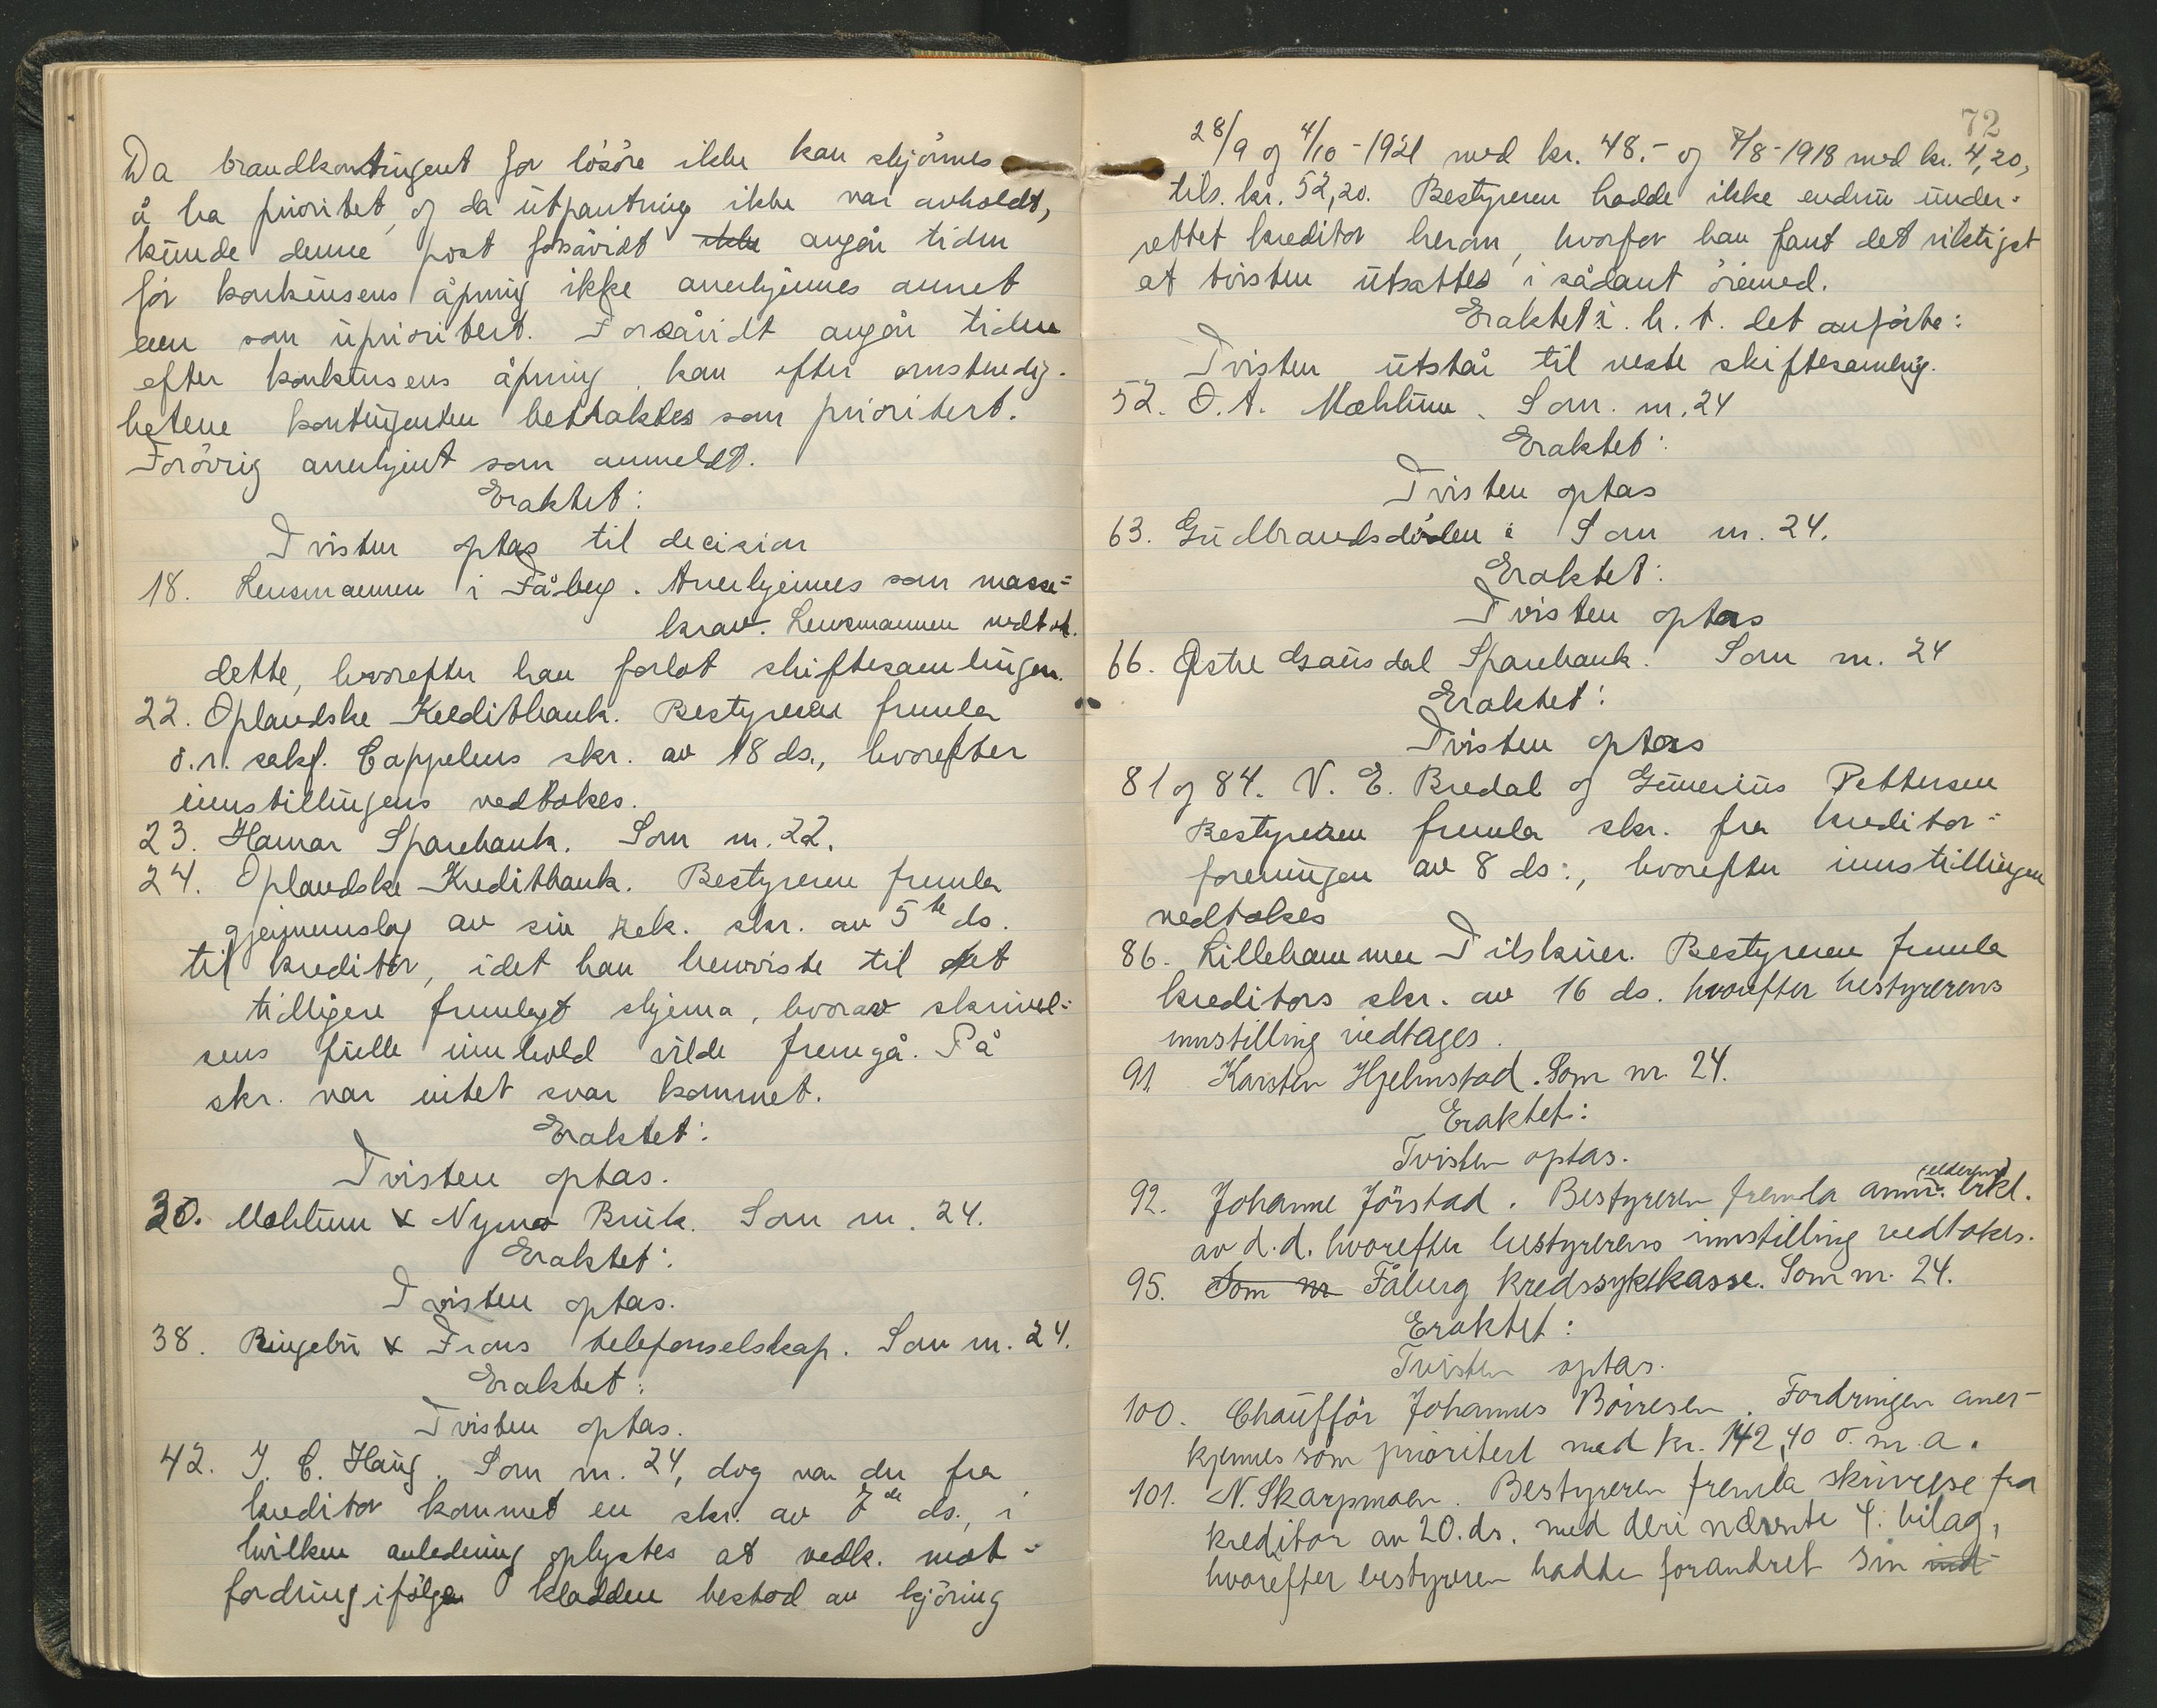 Da brandkontingent for lösöre ikke kan skjönnes
å ha prioritet, og da utpantning ikke var avholdt,
kunde denne post forsåvidt ikke angår tiden
för konkursens åpning ikke anerkjennes annet
enn som uprioritert. Forsåvidt angår tiden
efter konkursens åpning, kan efter omstendig-
hetene kontingenten betraktes som prioritert.
Forövrig anerkjent som anmeldt.
Eraktet:
Tvisten optas til decision
18. Lensmannen i Fåberg. Anerkjennes som masse-
krav. Lensmannen vedtok
dette, hvorefter han forlot skiftesamlingen.
22. Oplandske Kreditbank. Bestyreren fremla
o.r. sakf. Cappelens skr. av 18 ds., hvorefter
innstillingens vedtokes.
23. Hamar Sparebank. Som nr. 22.
24. Oplandske Kreditbank. Bestyreren fremla
gjennemslag av sin rek. skr. av 5te ds.
til kreditor, idet han henviste til det
tidligere fremlagt skjema, hvorav skrivel-
sens fulle innhold vilde fremgå. På
skr. var intet svar kommet.
Eraktet:
Tvisten optas.
30. Mæhlum & Nymo Bruk. Som nr. 24.
Eraktet:
Tvisten optas.
38. Ringebu & Frons telefonselskap. Som nr. 24.
Eraktet:
Tvisten optas.
42. J. C. Haug. Som nr. 24, dog var der fra
kreditor kommet en skr. av 7de ds., i
hvilken anledning oplystes at vedk. mot-
fordring ifölge kladden bestod av kjöring
72
28/9 og 4/10-1921 med kr. 48.- og 7/8-1918 med kr. 4,20,
tils. kr. 52,20. Bestyreren hadde ikke ennu under-
rettet kreditor herom, hvorfor han fant det riktigst
at tvisten utsattes i sådant öiemed.
Eraktet i. h. t. det anförte:
Tvisten utstår til neste skiftesamling.
52. O. A. Mæhlum. Som nr. 24
Eraktet:
Tvisten optas
63. Gudbrandsdölen: Som nr. 24.
Eraktet:
Tvisten optas
66. Østre Gausdal Sparebank. Som nr. 24
Eraktet:
Tvisten optas
81 og 84. N. E. Bredal og Gunerius Pettersen
Bestyreren fremla skr. fra kreditor-
foreningen av 8 ds:, hvorefter innstillingen
vedtokes
86. Lillehammer Tilskuer. Bestyreren fremla
kreditors skr. av 16 ds. hvorefter bestyrerens
innstilling vedtages.
91. Karsten Hjelmstad. Som nr. 24.
Eraktet:
Tvisten optas.
92. Johanne Jörstad. Bestyreren fremla erkl.
av d.d. hvorefter bestyrerens innstilling vedtokes.
95. Som nr Fåberg kredssykekasse. Som nr. 24.
Eraktet:
Tvisten optas.
100. Chaufför Johannes Börresen. Fordringen aner-
kjennes som prioritert med kr. 142,40 o. m. a.
101. N. Skarpmoen. Bestyreren fremla skrivelse fra
kreditor av 20. ds. med deri nævnte 4. bilag,
hvorefter bestyreren hadde forandret sin ind-